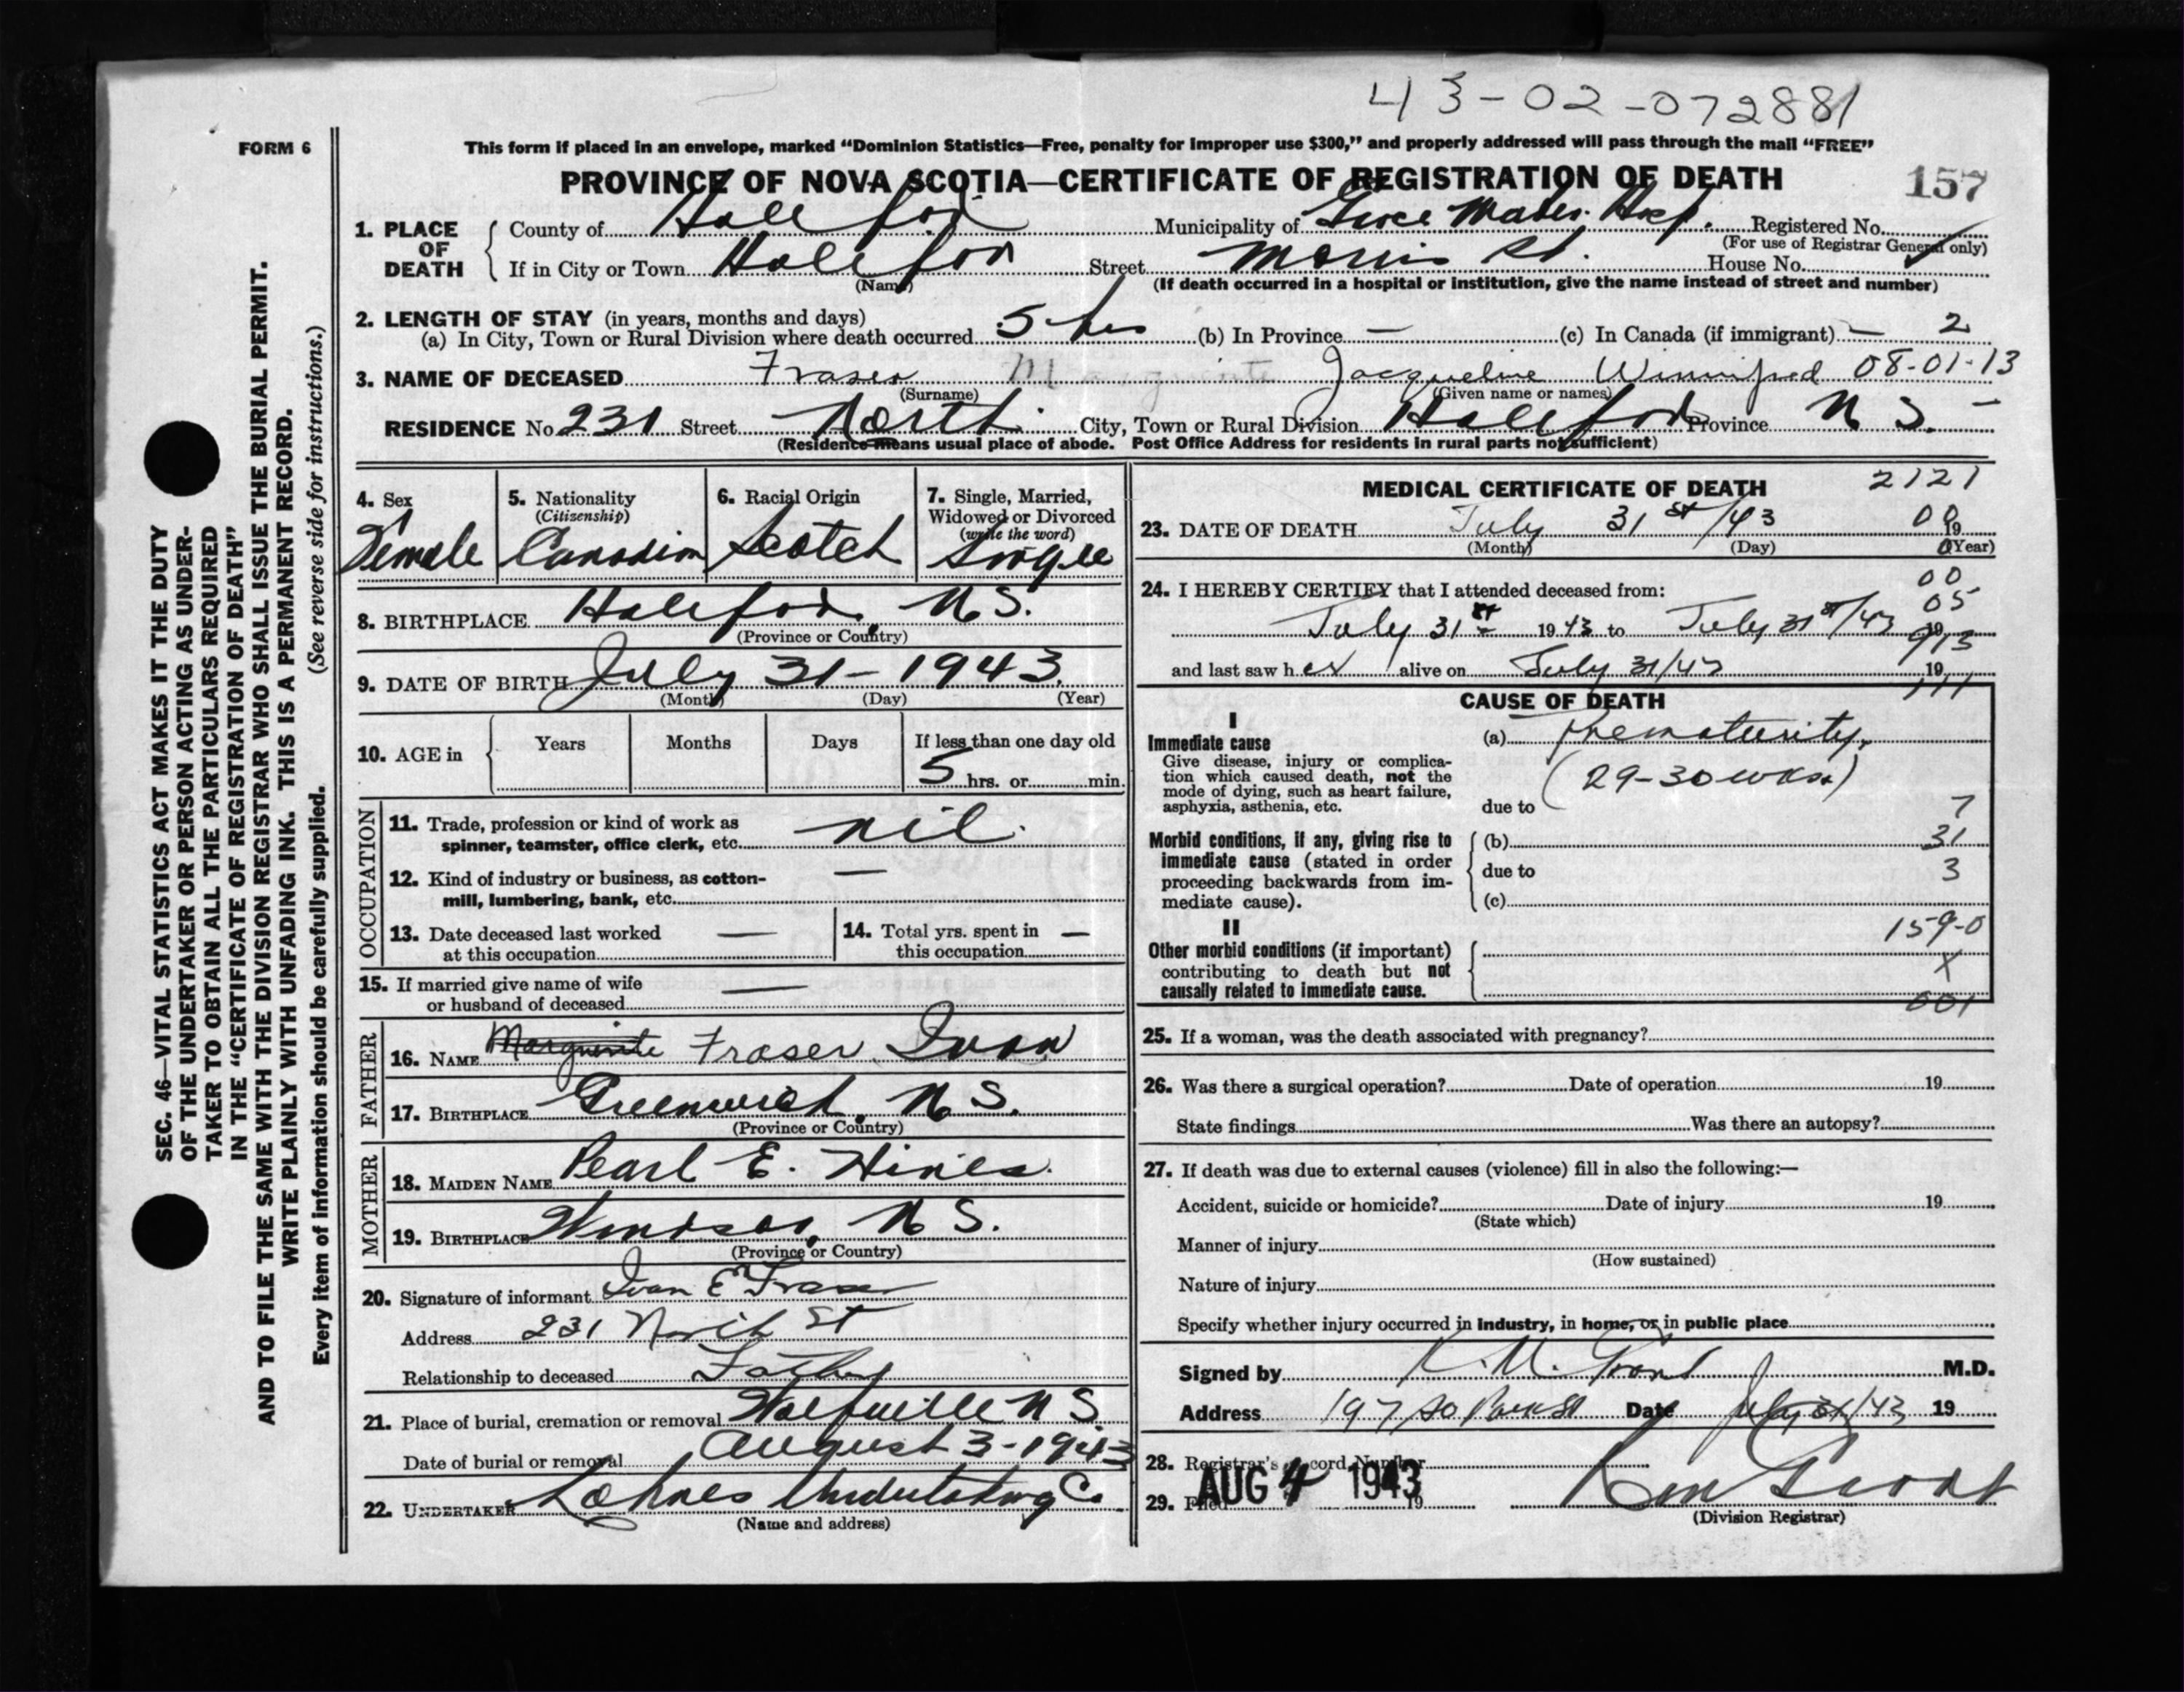 43-02-072881
FORM 6
This form if placed in an envelope, marked “Dominion Statistics—Free, penalty for improper use $300,” and properly addressed will pass through the mail “FREE”
PROVINCE OF NOVA SCOTIA—CERTIFICATE OF REGISTRATION OF DEATH
157
SEC. 46—VITAL STATISTICS ACT MAKES IT THE DUTY
OF THE UNDERTAKER OR PERSON ACTING AS UNDER-
TAKER TO OBTAIN ALL THE PARTICULARS REQUIRED
IN THE “CERTIFICATE OF REGISTRATION OF DEATH”
AND TO FILE THE SAME WITH THE DIVISION REGISTRAR WHO SHALL ISSUE THE BURIAL PERMIT.
WRITE PLAINLY WITH UNFADING INK. THIS IS A PERMANENT RECORD.
Every item of information should be carefully supplied. (See reverse side for instructions.)
1. PLACE OF DEATH
County of Halifax Municipality of Grace Mater. Hosp. Registered No.
(For use of Registrar General only)
If in City or Town Halifax Street Morris St. House No.
(Name) (If death occurred in a hospital or institution, give the name instead of street and number)
2. LENGTH OF STAY (in years, months and days)
(a) In City, Town or Rural Division where death occurred 5 hrs (b) In Province — (c) In Canada (if immigrant) — 2
3. NAME OF DECEASED Fraser Marguerite Jacqueline Winnifred 08-01-13
(Surname) (Given name or names)
RESIDENCE No 231 Street North City, Town or Rural Division Halifax Province N S. —
(Residence means usual place of abode. Post Office Address for residents in rural parts not sufficient)
4. Sex Female
5. Nationality (Citizenship) Canadian
6. Racial Origin Scotch
7. Single, Married, Widowed or Divorced (write the word) Single
8. BIRTHPLACE Halifax, N.S.
(Province or Country)
9. DATE OF BIRTH July 31-1943.
(Month) (Day) (Year)
10. AGE in Years Months Days If less than one day old
5 hrs. or min.
OCCUPATION
11. Trade, profession or kind of work as
spinner, teamster, office clerk, etc. nil.
12. Kind of industry or business, as cotton- —
mill, lumbering, bank, etc.
13. Date deceased last worked —
at this occupation
14. Total yrs. spent in —
this occupation
15. If married give name of wife —
or husband of deceased
FATHER
16. NAME Marguerite Fraser Ivan
17. BIRTHPLACE Greenwich, N S.
(Province or Country)
MOTHER
18. MAIDEN NAME Pearl E. Hines.
19. BIRTHPLACE Windsor, N S.
(Province or Country)
20. Signature of informant Ivan E Fraser
Address 231 North St
Relationship to deceased Father
21. Place of burial, cremation or removal Wolfville N S
Date of burial or removal August 3-1943
22. UNDERTAKER Undertaking Co
(Name and address)
MEDICAL CERTIFICATE OF DEATH 2121
23. DATE OF DEATH July 31st/43 00 19
(Month) (Day) 0 (Year)
24. I HEREBY CERTIFY that I attended deceased from: 00
05
July 31st 1943 to July 31st/43 19 913
and last saw her alive on July 31/43 19
111
CAUSE OF DEATH
I
Immediate cause
Give disease, injury or complica-
tion which caused death, not the
mode of dying, such as heart failure,
asphyxia, asthenia, etc.
(a) Prematurity,
(29-30 wks.)
due to 7
Morbid conditions, if any, giving rise to
immediate cause (stated in order
proceeding backwards from im-
mediate cause).
(b) 31
due to 3
(c)
159-0
II
Other morbid conditions (if important)
contributing to death but not
causally related to immediate cause.
X
001
25. If a woman, was the death associated with pregnancy?
26. Was there a surgical operation? Date of operation 19
State findings Was there an autopsy?
27. If death was due to external causes (violence) fill in also the following:—
Accident, suicide or homicide? Date of injury 19
(State which)
Manner of injury
(How sustained)
Nature of injury
Specify whether injury occurred in industry, in home, or in public place
Signed by K. M. Grant M.D.
Address 197 So Park St Date July 31/43 19
28. Registrar's Record Number
29. Filed AUG 4 1943 19
(Division Registrar)